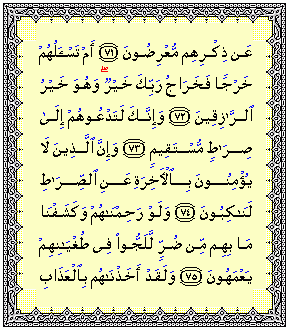 عَن ذِكْرِهِم مُّعْرِضُونَ ﴿٧١﴾ أَمْ تَسْـَٔلُهُمْ
خَرْجًا فَخَرَاجُ رَبِّكَ خَيْرٌ ۖ وَهُوَ خَيْرُ
ٱلرَّٰزِقِينَ ﴿٧٢﴾ وَإِنَّكَ لَتَدْعُوهُمْ إِلَىٰ
صِرَٰطٍ مُّسْتَقِيمٍ ﴿٧٣﴾ وَإِنَّ ٱلَّذِينَ لَا
يُؤْمِنُونَ بِٱلْـَٔاخِرَةِ عَنِ ٱلصِّرَٰطِ
لَنَٰكِبُونَ ﴿٧٤﴾ وَلَوْ رَحِمْنَٰهُمْ وَكَشَفْنَا
مَا بِهِم مِّن ضُرٍّ لَّلَجُّوا۟ فِى طُغْيَٰنِهِمْ
يَعْمَهُونَ ﴿٧٥﴾ وَلَقَدْ أَخَذْنَٰهُم بِٱلْعَذَابِ